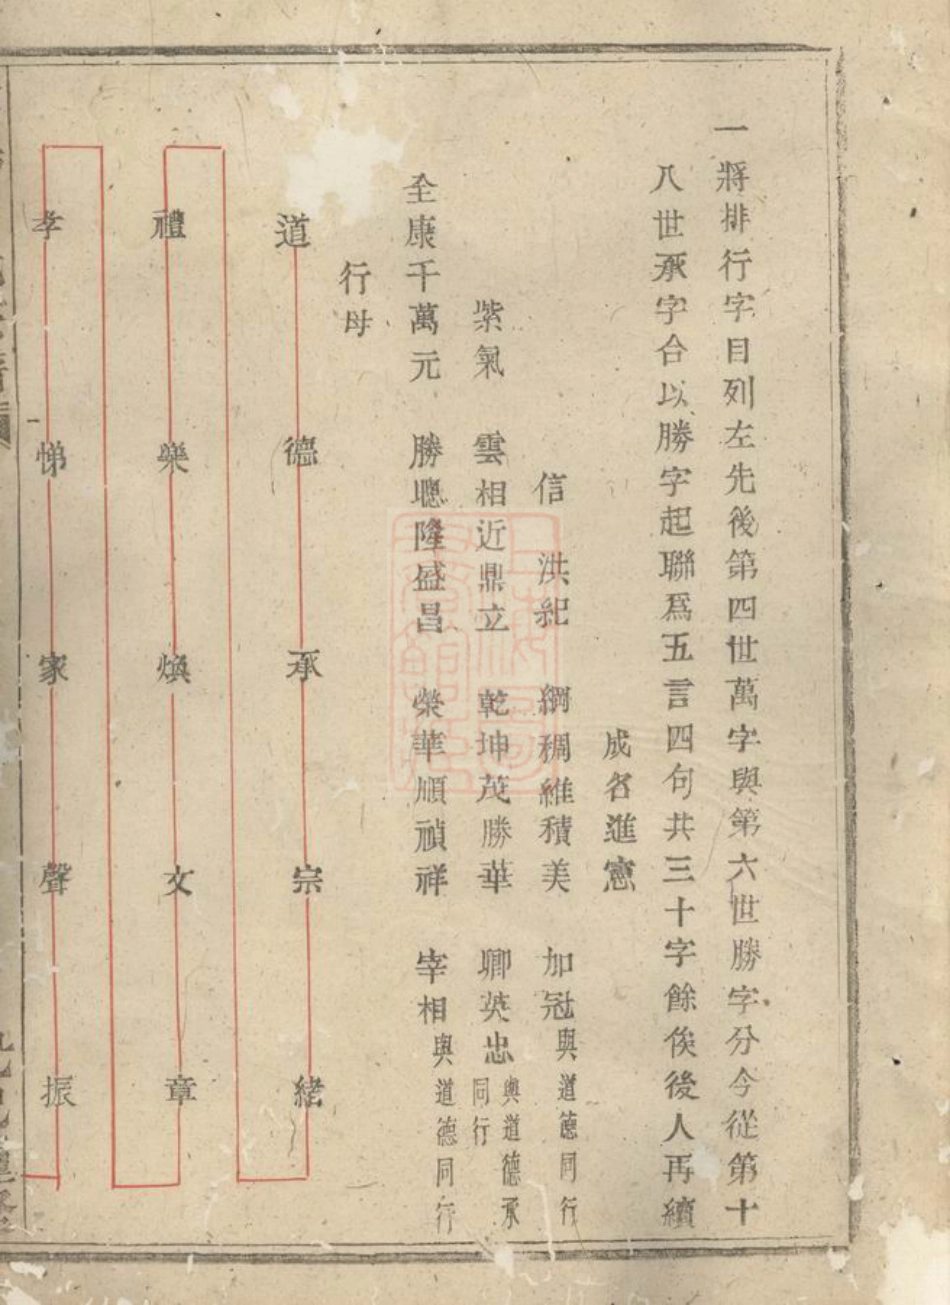 一將排行字目列左先後第四世萬字與第六世勝字分今從第十
八世承字合以勝字起聯爲五言四句共三十字餘俟後人再續
成名進憲
信 洪紀 綱稠維積美 加冠與道德同行
紫氣 雲相近鼎立 乾坤茂勝華 卿英忠與道德承同行
全康千萬元 勝聰隆盛昌 榮華順禎祥 宰相與道德同行
行母
道 德 承 宗 緒
禮 樂 煥 文 章
孝 悌 家 聲 振